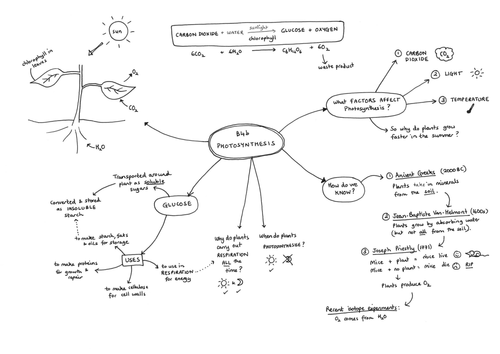 CARBON DIOXIDE + WATER sunlight GLUCOSE + OXYGEN
chlorophyll
6CO₂ + 6H₂O → C₆H₁₂O₆ + 6O₂
waste product
sun
chlorophyll in
leaves
O₂
CO₂
H₂O
B4b
PHOTOSYNTHESIS
What FACTORS AFFECT
Photosynthesis?
① CARBON
DIOXIDE
CO₂
② LIGHT
③ TEMPERATURE
So why do plants grow
faster in the summer?
How do we
know?
① Ancient Greeks (2000BC)
Plants take in minerals
from the soil.
② Jean-Baptiste Van-Helmont (1600s)
Plants grow by absorbing water
(but not all from the soil).
③ Joseph Priestly
Mice + plant = mice live
Mice + no plant = mice die
RIP
Plants produce O₂
Recent isotope experiments:
O₂ comes from H₂O
When do plants
PHOTOSYNTHESISE?
Why do plants
carry out
RESPIRATION
ALL the
time?
GLUCOSE
Transported around
plant as soluble
sugars
Converted & stored
as INSOLUBLE
starch
to make starch, fats
& oils for storage
USES
to make proteins
for growth &
repair
to make cellulose
for cell walls
to use in
RESPIRATION
for energy